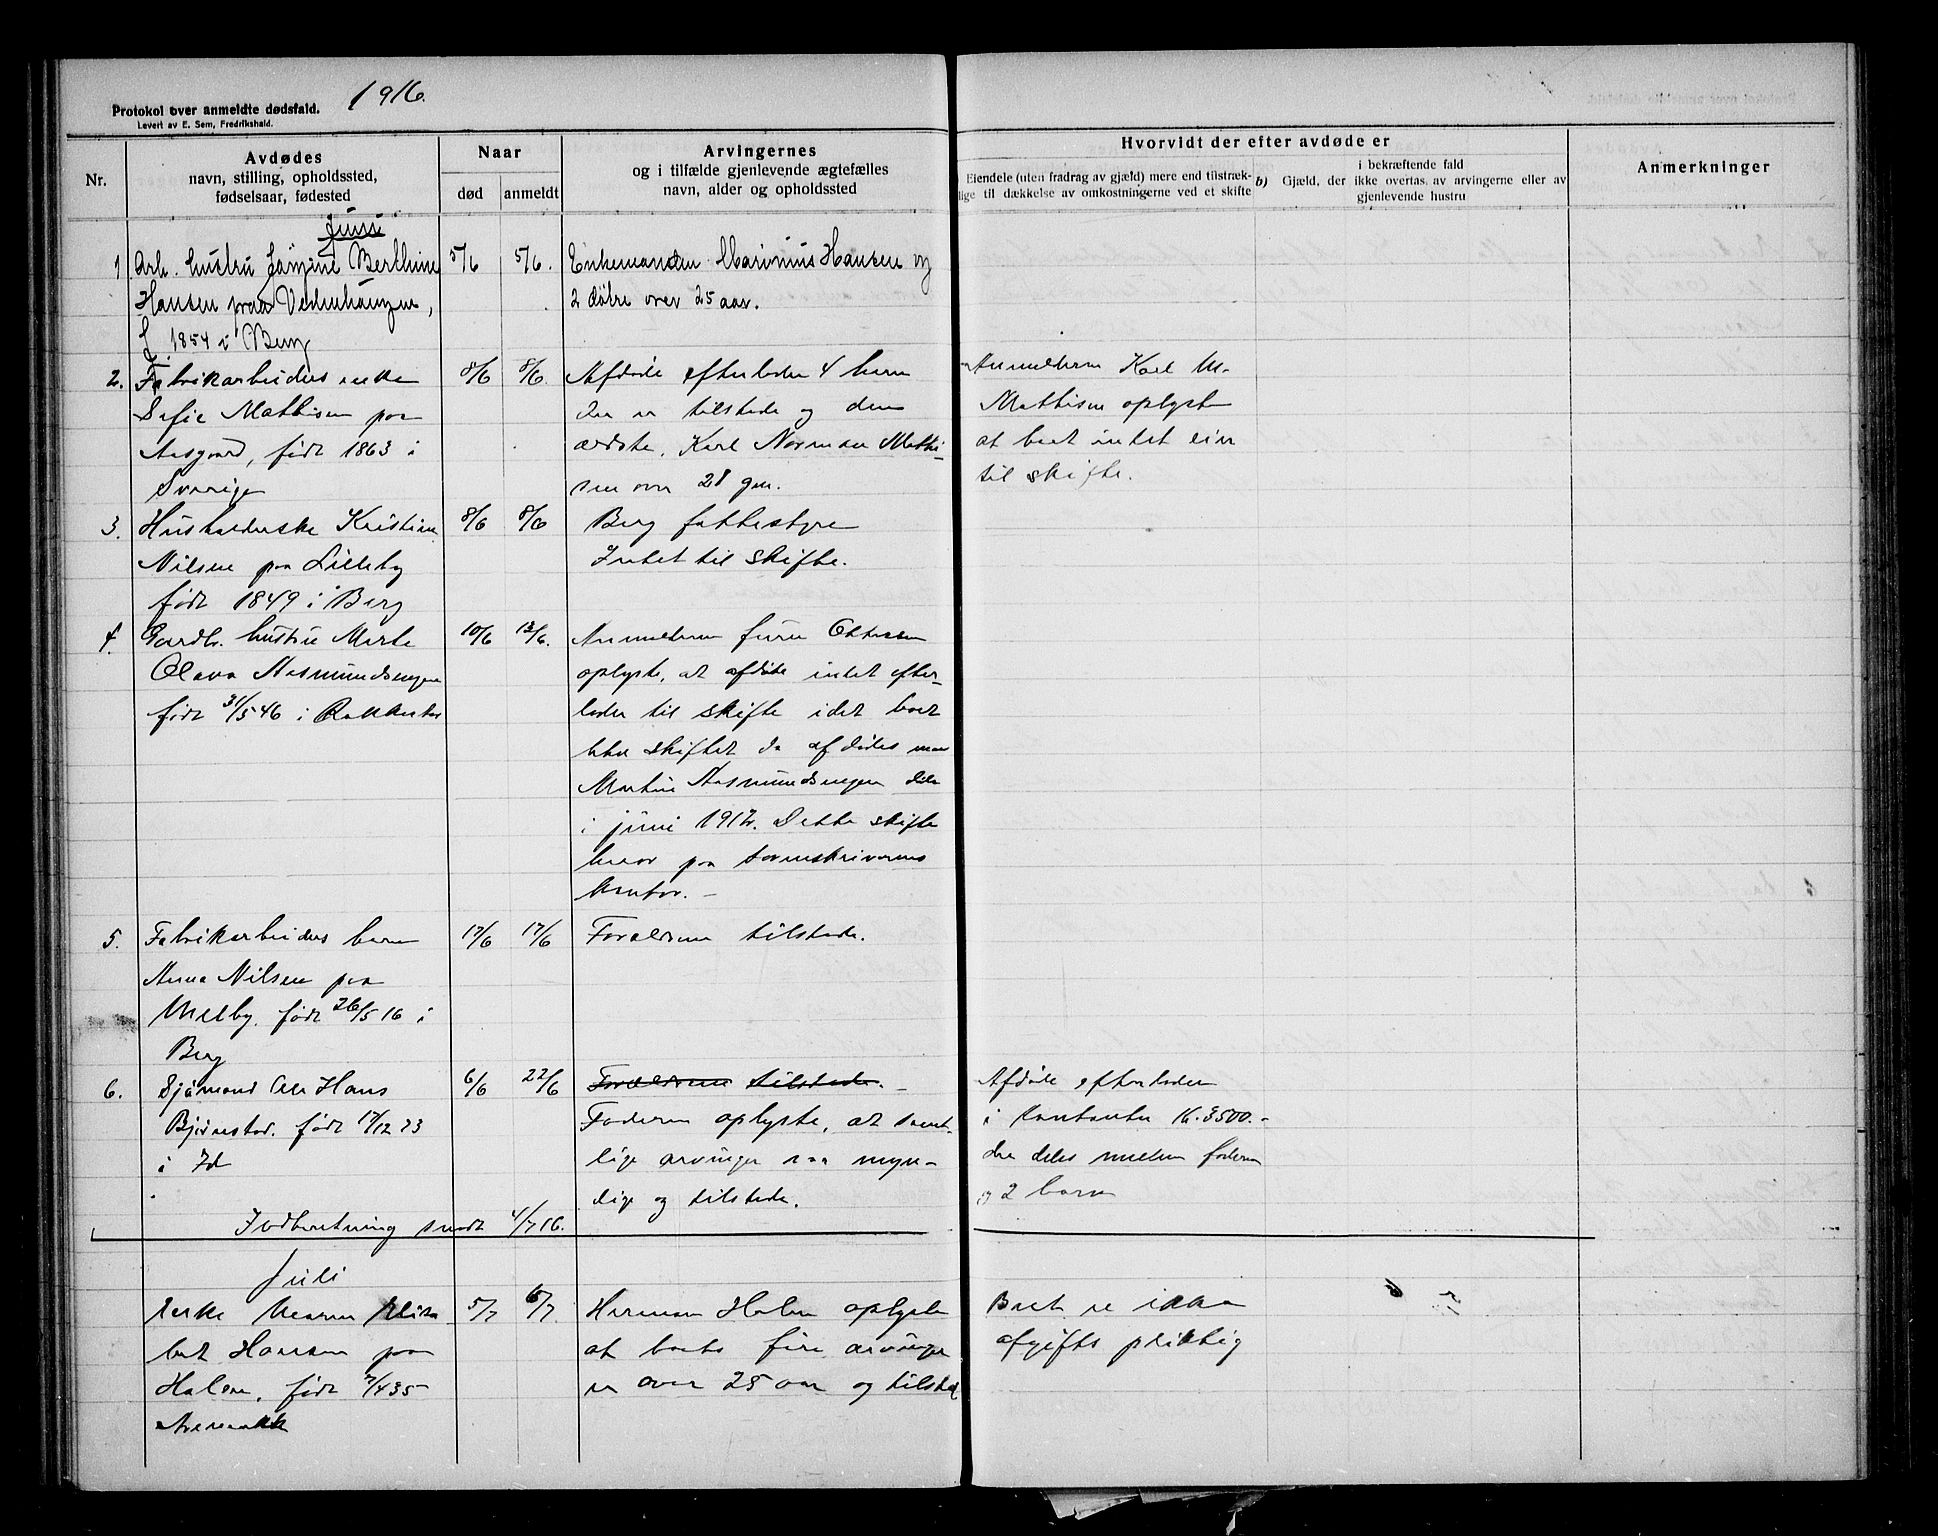 1916.
Protokol over anmeldte dødsfald.
Levert av E. Sem, Fredrikshald.
Nr.
Avdødes
navn, stilling, opholdssted,
fødselsaar, fødested
Naar
død
anmeldt
Arvingernes
og i tilfælde gjenlevende ægtefælles
navn, alder og opholdssted
Hvorvidt der efter avdøde er
Eiendele (uten fradrag av gjæld) mere end tilstræk-
lige til dækkelse av omkostningerne ved et skifte
b)
i bekræftende fald
Gjæld, der ikke overtas av arvingerne eller av
gjenlevende hustru
Anmerkninger
Juni
1 Arb. hustru Berthine 5/6 5/6. Enkemanden Marinius Hansen og
Hansen paa 2 døtre over 25 aar.
f. 1854 i Berg
2. Fabrikarbeiders enke 8/6 8/6. Afdøde efterlader 4 barn Anmelderen Karl M.
Sofie Mathisen paa der er tilstede og den Mathisen oplyste
Aasgaard, født 1863 i ældste, Karl Norman Mathi- at boet intet eier
Sverige sen over 21 gm. til skifte.
3. Husholderske Kristine 8/6 8/6 Berg fattestyre
Nilsen paa Lilleby Intet til skifte.
født 1849 i Berg
4. Gardbr. hustru Marte 10/6 13/6. Anmelderen Ottesen
Olava Aasmundsengen oplyste, at afdøde intet efter-
født 31/5 46 i Rakkestad lader til skifte idet boet
blev skiftet da afdødes man
Martin Aasmundsengen døde
i juni 1912. Dette skifte
beror paa sorenskriverens
kontor. -
5. Fabrikarbeiders barn 17/6 17/6 Forældrene tilstede.
Anna Nilsen paa
født 26/5 16 i
Berg
6. Sjømand Ole Hans 6/6 22/6 Forældrene tilstede. - Afdøde efterlader
Bjørnstad. født 17/12 93 Faderen oplyste, at samt- i kontanter K. 3500.-
i Id lige arvinger er myn- der deles mellem faderen
dige og tilstede. og 2 barn
Indberetning sendt 4/7 16.
Juli
Enke Maren Elisa 5/7 6/7. Herman Halen oplyste Boet er ikke
bet Hansen paa at boets fire arvinger afgifts pliktig
Halen, født 7/4 35 er over 25 aar og tilsted
Aremark